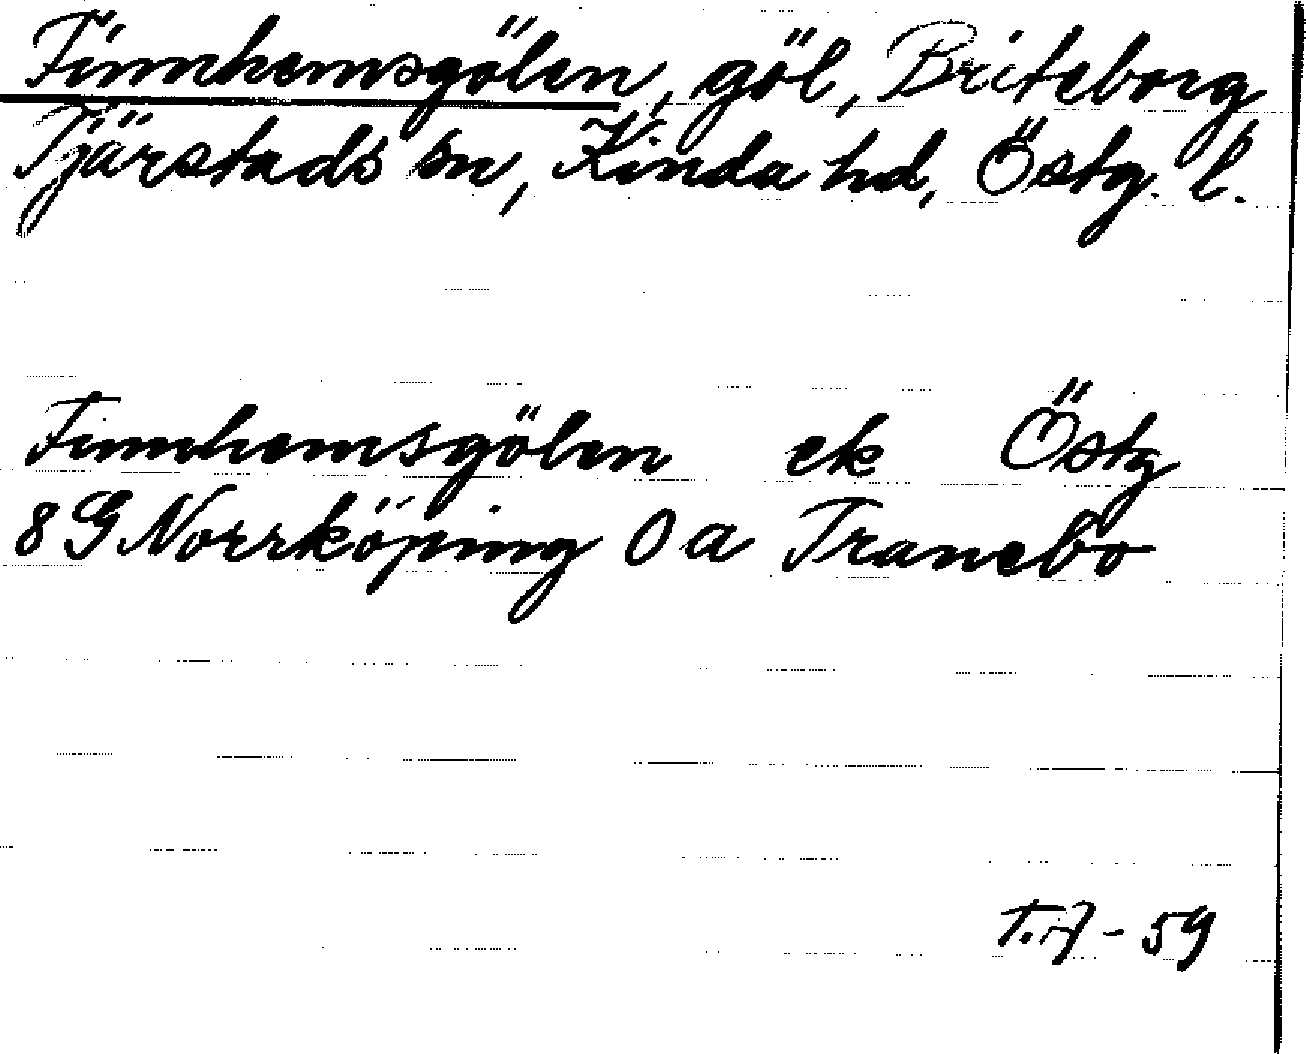 Finnhemsgölen, göl, Briteborg
Tjärstads sn, Kinda hd, Östg. l.
Finnhemsgölen ek Östg
8 G Norrköping 0 a Tranebo
T.A - 59